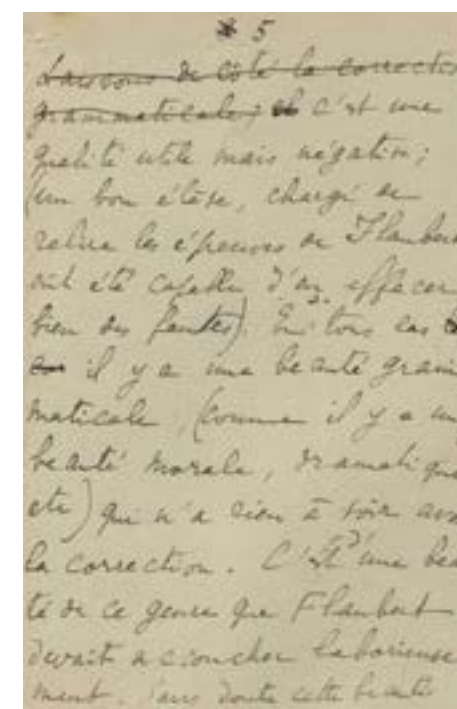 5
Laissons de côté la correctio
grammaticale; c'est une
qualité utile mais négative;
(un bon élève, chargé de
relire les épreuves de Flaubert
eût été capable d'en effacer
bien des fautes). En tous cas
il y a une beauté gram
maticale, (comme il y a un
beauté morale, dramatique
etc) qui n'a rien à voir ave
la correction. C'est d'une beau
té de ce genre que Flaubert
devait accoucher laborieuse
ment. Sans doute cette beauté